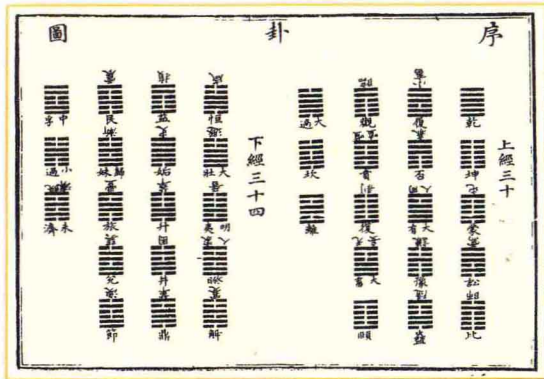 序卦圖
上經三十
乾
坤 屯
蒙 需
訟 師
比
小畜
履 泰
否 同人
大有 謙
豫 隨
蠱
臨
觀 噬嗑
賁 剝
復 无妄
大畜
頤
大過
坎
離
下經三十四
咸
恒 遯
大壯 晉
明夷 家人
睽 蹇
解
損
益 夬
姤 萃
升 困
井 革
鼎
震
艮 漸
歸妹 豐
旅 巽
兌 渙
節
中孚
小過 既濟
未濟